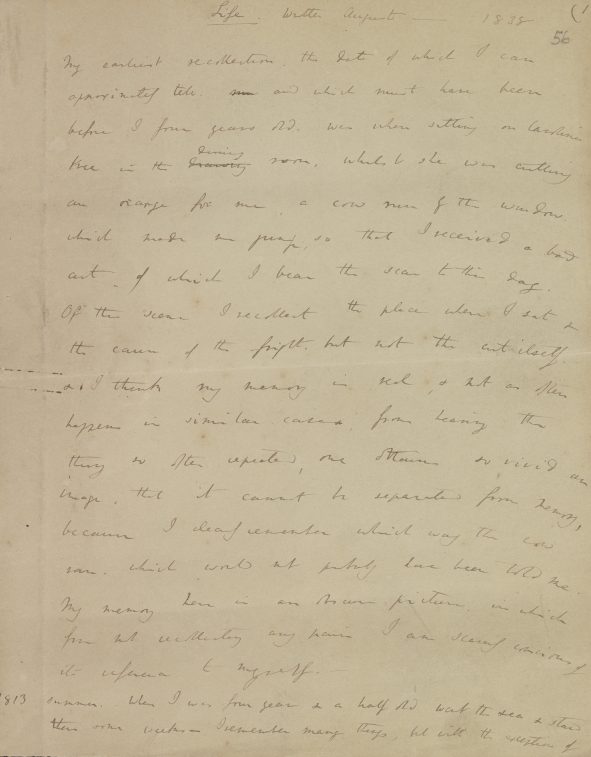 Life. Written August — 1838 (1
56
My earliest recollection, the date of which I can
approximately tell, and which must have been
before I four years old, was when sitting on Caroline's
knee in the dining drawing room, whilst she was cutting
an orange for me, a cow run by the window,
which made me jump, so that I received a bad
cut, of which I bear the scar to this day.
Of this scene I recollect the place where I sat &
the cause of the fright, but not the cut itself.
& I think my memory is real, & not as often
happens in similar cases, from hearing the
thing so often repeated, one obtains so vivid an
image, that it cannot be separated from memory,
because I clearly remember which way the cow
ran, which would not probably have been told me.
My memory here is an obscure picture, in which
from not recollecting any pain I am scarcely conscious of
its reference to myself. —
1813 summer. When I was four years & a half old went to the sea & staid
there some weeks — I remember many things, but with the exception of